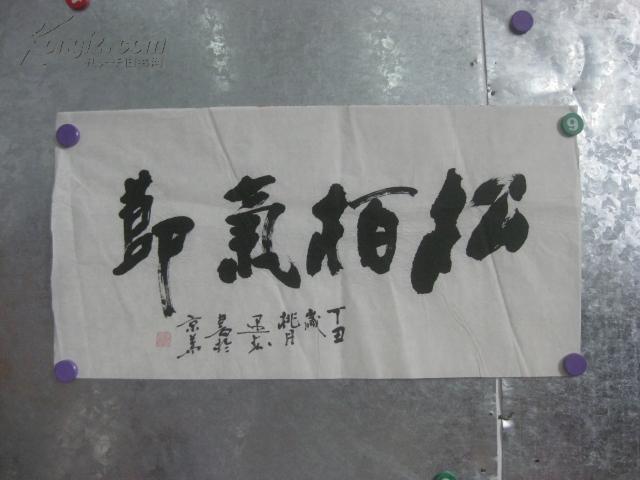 松柏氣節
丁丑
歲
桃月
書於
京華
Kongfz.com
孔夫子旧书网
9